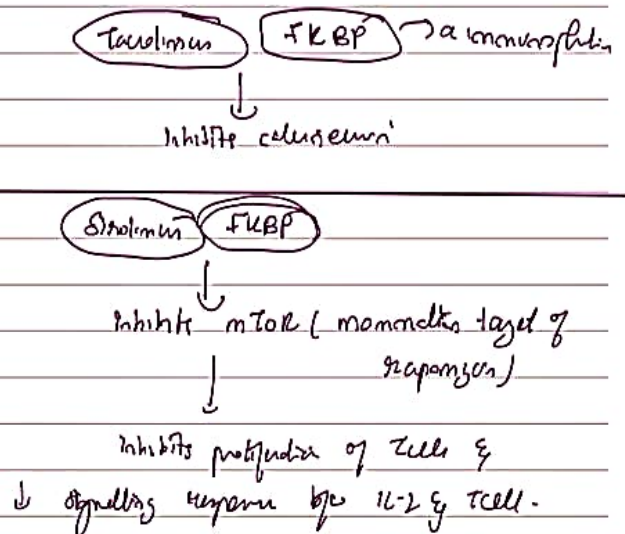 Tacrolimus FKBP → a immunophilin
↓
Inhibits calcineurin
Sirolimus FKBP
↓
Inhibits mTOR ( mammalian target of
rapamycin)
↓
Inhibits proliferation of T cells &
↓ signalling response b/w IL-2 & T cell.